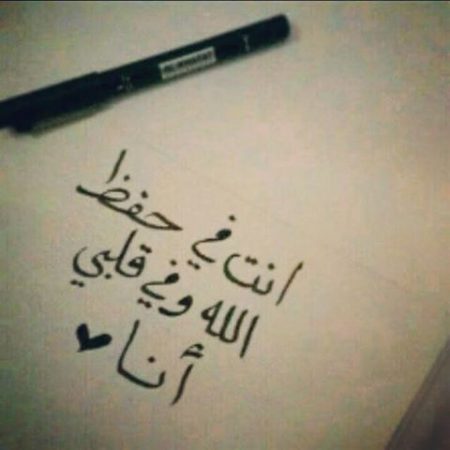 انت في حفظ
الله وفي قلبي
أنا